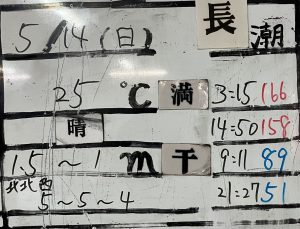 5/14(日) 長潮
25℃ 満 3:15 166
晴 14:50 158
1.5～1m 干 9:11 89
北北西 5～5～4 21:27 51